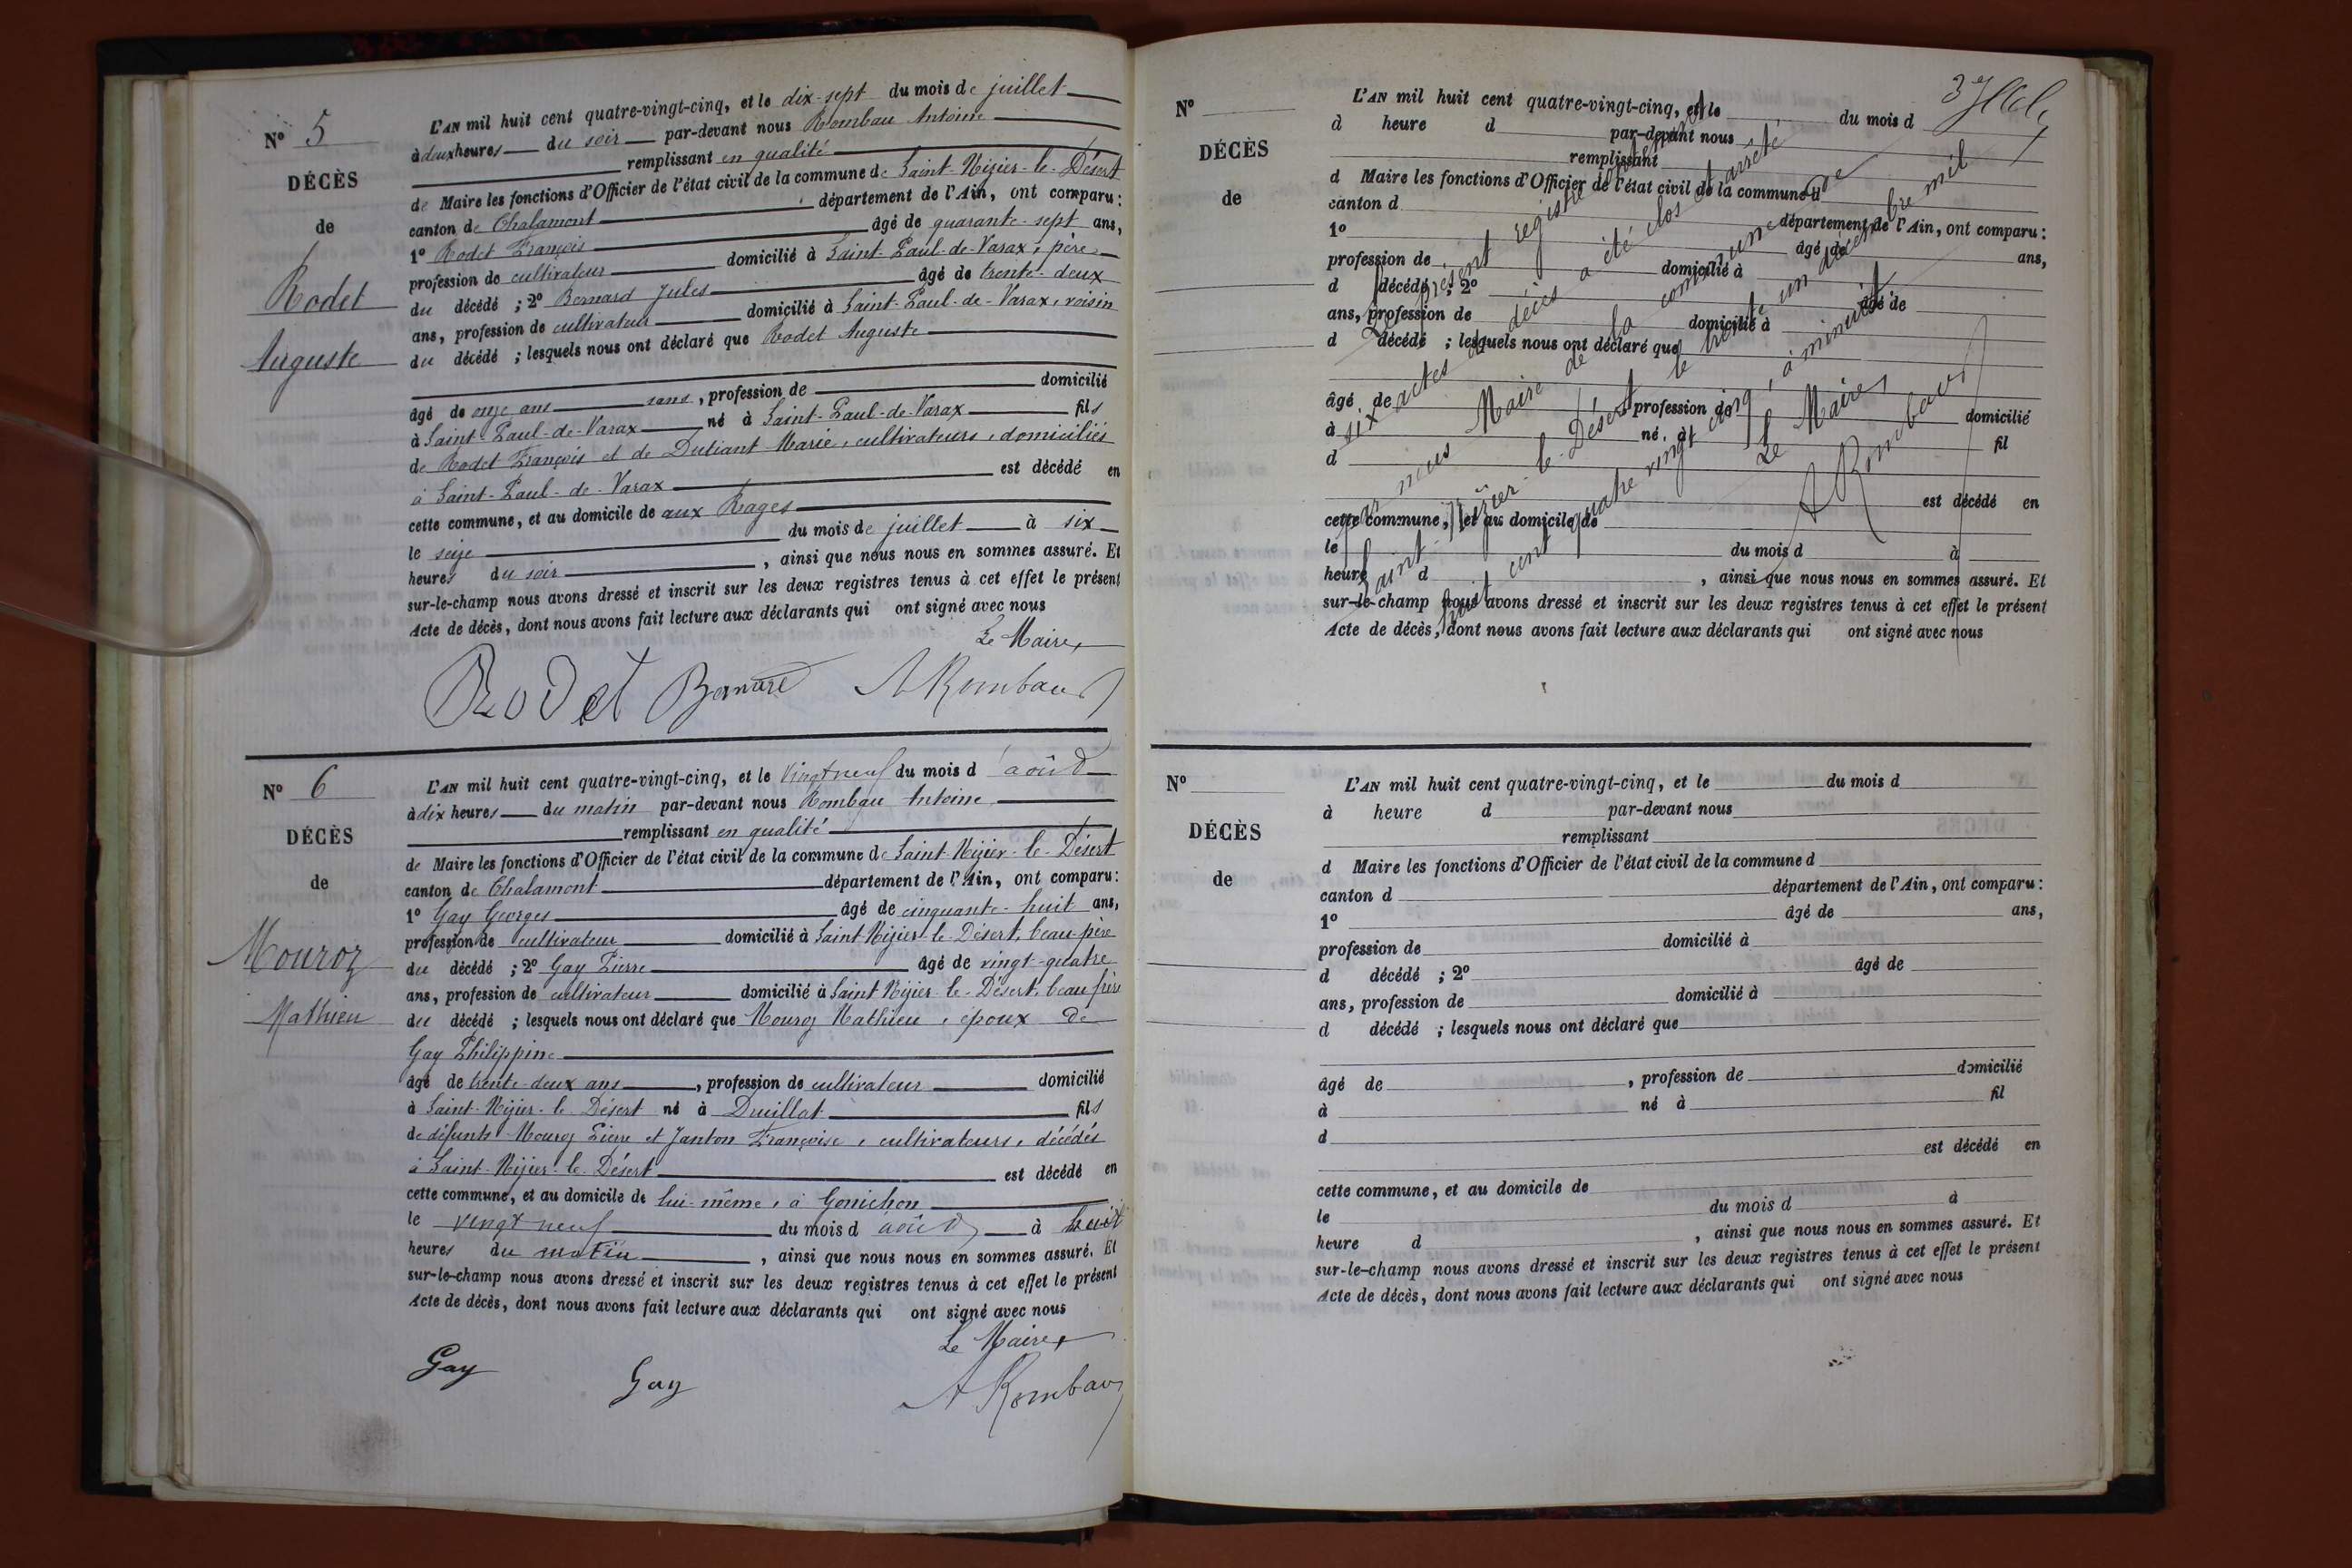 N° 5
DÉCÈS
de
Rodet
Auguste
L'AN mil huit cent quatre-vingt-cinq, et le dix-sept du mois de juillet
à deux heures du soir par-devant nous Rombau Antoine
remplissant en qualité
de Maire les fonctions d'Officier de l'état civil de la commune de Saint-Nizier-le-Désert
canton de Chalamont département de l'Ain, ont comparu :
1° Rodet François âgé de quarante-sept ans,
profession de cultivateur domicilié à Saint-Paul-de-Varax, père
du décédé ; 2° Bernard Jules âgé de trente-deux
ans, profession de cultivateur domicilié à Saint-Paul-de-Varax, voisin
du décédé ; lesquels nous ont déclaré que Rodet Auguste
âgé de onze ans sans, profession de domicilié
à Saint-Paul-de-Varax né à Saint-Paul-de-Varax fils
de Rodet François et de Marie, cultivateurs, domiciliés
à Saint-Paul-de-Varax est décédé en
cette commune, et au domicile de aux Rages
le seize du mois de juillet à six
heures du soir, ainsi que nous nous en sommes assuré. Et
sur-le-champ nous avons dressé et inscrit sur les deux registres tenus à cet effet le présent
Acte de décès, dont nous avons fait lecture aux déclarants qui ont signé avec nous
Le Maire,
Rodet Bernard A Rombau
N° 6
DÉCÈS
de
Mouroz
Mathieu
L'AN mil huit cent quatre-vingt-cinq, et le vingt neuf du mois d août
à dix heures du matin par-devant nous Rombau Antoine
remplissant en qualité
de Maire les fonctions d'Officier de l'état civil de la commune de Saint-Nizier-le-Désert
canton de Chalamont département de l'Ain, ont comparu :
1° Gay Georges âgé de cinquante-huit ans,
profession de cultivateur domicilié à Saint Nizier-le-Désert, beau-père
du décédé ; 2° Gay Pierre âgé de vingt-quatre
ans, profession de cultivateur domicilié à Saint Nizier-le-Désert, beau frère
du décédé ; lesquels nous ont déclaré que Mouroz Mathieu, époux de
Gay Philippine
âgé de trente-deux ans, profession de cultivateur domicilié
à Saint-Nizier-le Désert né à Druillat fils
de défunts Mouroz Pierre et Janton Françoise, cultivateurs, décédés
à Saint-Nizier-le-Désert est décédé en
cette commune, et au domicile de lui-même, à Gonichon
le vingt neuf du mois d août à huit
heures du matin, ainsi que nous nous en sommes assuré. Et
sur-le-champ nous avons dressé et inscrit sur les deux registres tenus à cet effet le présent
Acte de décès, dont nous avons fait lecture aux déclarants qui ont signé avec nous
Le Maire,
Gay Gay A Rombau
N°
DÉCÈS
de
L'AN mil huit cent quatre-vingt-cinq, et le du mois d
à heure d par-devant nous
remplissant
d Maire les fonctions d'Officier de l'état civil de la commune d
canton d département de l'Ain, ont comparu :
1° âgé de ans,
profession de domicilié à
d décédé ; 2° âgé de
ans, profession de domicilié à
d décédé ; lesquels nous ont déclaré que
âgé de , profession de domicilié
à né à fil
d
est décédé en
cette commune, et au domicile de
le du mois d à
heure d , ainsi que nous nous en sommes assuré. Et
sur-le-champ nous avons dressé et inscrit sur les deux registres tenus à cet effet le présent
Acte de décès, dont nous avons fait lecture aux déclarants qui ont signé avec nous
Le présent registre contenant
six actes de décès a été clos et arrêté
par nous Maire de la commune de
Saint-Nizier-le-Désert le trente un décembre mil
huit cent quatre vingt cinq, à minuit
Le Maire,
A Rombau
N°
DÉCÈS
de
L'AN mil huit cent quatre-vingt-cinq, et le du mois d
à heure d par-devant nous
remplissant
d Maire les fonctions d'Officier de l'état civil de la commune d
canton d département de l'Ain, ont comparu :
1° âgé de ans,
profession de domicilié à
d décédé ; 2° âgé de
ans, profession de domicilié à
d décédé ; lesquels nous ont déclaré que
âgé de , profession de domicilié
à né à fil
d
est décédé en
cette commune, et au domicile de
le du mois d à
heure d , ainsi que nous nous en sommes assuré. Et
sur-le-champ nous avons dressé et inscrit sur les deux registres tenus à cet effet le présent
Acte de décès, dont nous avons fait lecture aux déclarants qui ont signé avec nous